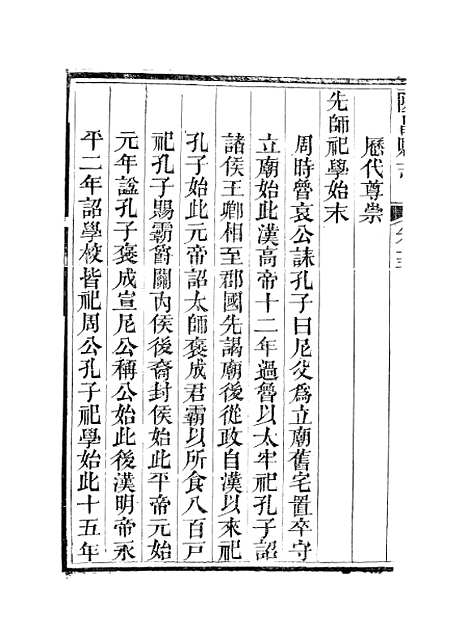 歷代尊崇
先師祀學始末
周時魯哀公誄孔子曰尼父爲立廟舊宅置卒守
立廟始此漢高帝十二年過魯以太牢祀孔子詔
諸侯王卿相至郡國先謁廟後從政自漢以來祀
孔子始此元帝詔太師褒成君霸以所食八百戸
祀孔子賜霸爵關内侯後裔封侯始此平帝元始
元年諡孔子褒成宣尼公稱公始此後漢明帝永
平二年詔學校皆祀周公孔子祀學始此十五年